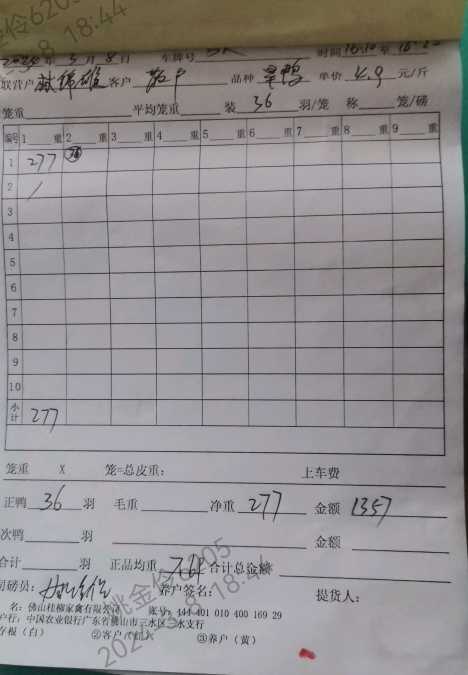 2024年3月8日 车牌号 时间16:10至16:25
联营户 客户 散户 品种 旱鸭 单价 4.9 元/斤
笼重 平均笼重 装 36 羽/笼 称 笼/磅
编号 1 重 2 重 3 重 4 重 5 重 6 重 7 重 8 重 9 重
1 277 76
2 /
3
4
5
6
7
8
9
10
小计 277
笼重 X 笼=总皮重: 上车费
正鸭 36 羽 毛重 净重 277 金额 1357
次鸭 羽 金额
合计 羽 正品均重 7.69 合计总金额
司磅员: 养户签名: 提货人:
名: 佛山桂柳家禽有限公司 账号: 444 401 010 400 169 29
户行: 中国农业银行广东省佛山市三水区 水支行
存根(白) ②客户(红) ③养户(黄)
姚金伶6205
18:44